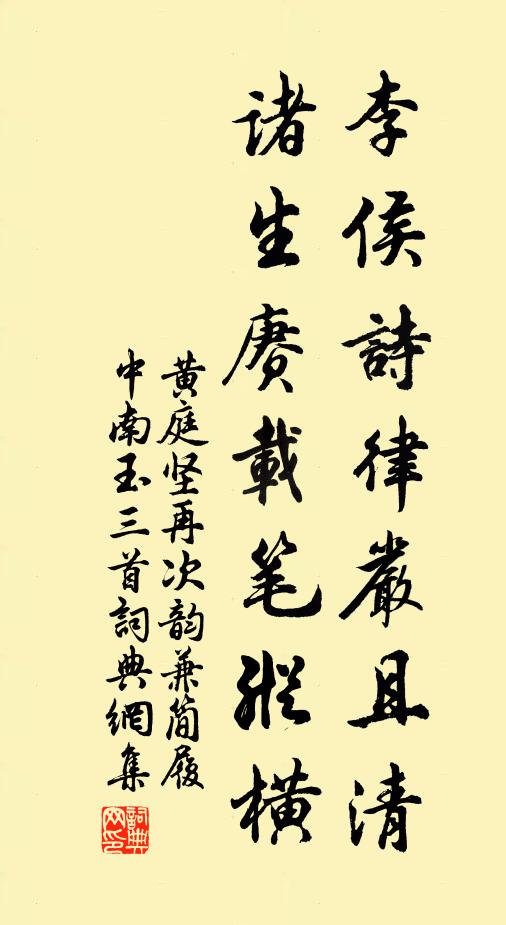 李侯詩律嚴且清
诸生赓載笔縱橫
黄庭坚再次韵兼简履
中南玉三首詞典網集
詞典
网印